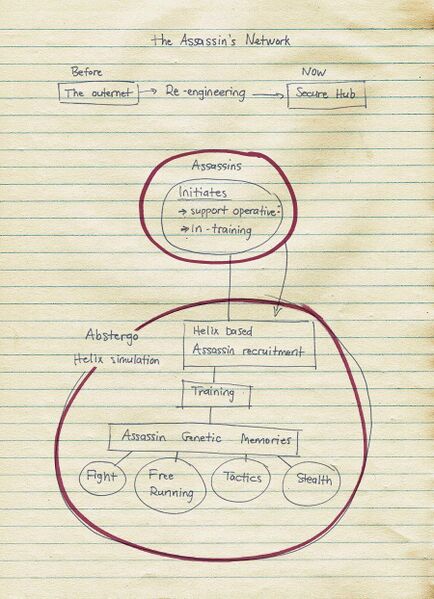 the Assassin's Network
Before
Now
The outernet
Re-engineering
Secure Hub
Assassins
Initiates
→ support operative
→ In-training
Abstergo
Helix simulation
Helix based
Assassin recruitment
Training
Assassin Genetic Memories
Fight
Free
Running
Tactics
Stealth